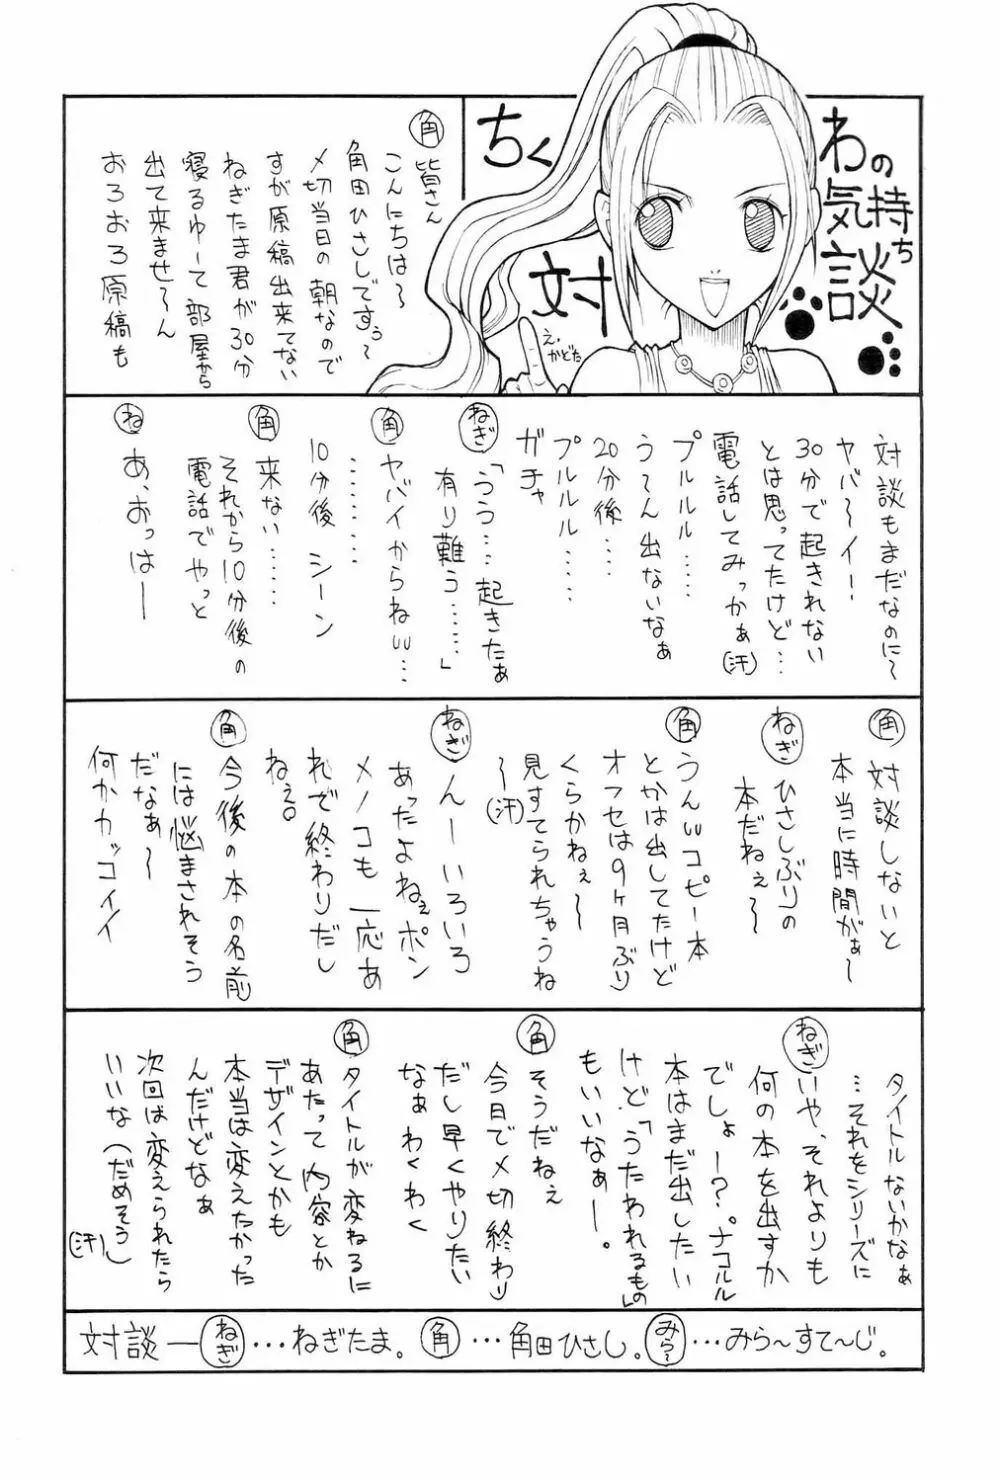 ちくわの気持ち
対談
え・かどた
角 皆さん
こんにちは〜
角田ひさしですぅ〜
〆切当日の朝なので
すが原稿出来てない
ねぎたま君が30分
寝るゆーて部屋から
出て来ませ〜ん
おろおろ原稿も
対談もまだなのに〜
ヤバ〜イ!
30分で起きれない
とは思ってたけど…
電話してみっかぁ(汗)
プルルルル……
う〜ん出ないなぁ
20分後……
プルルルル……
ガチャ
ねぎ「うう…起きたぁ
有り難う……」
角 ヤバイからねw…
…………
10分後 シーン
角 来ない……
それから10分後の
電話でやっと
ね あ、おっはー
角 対談しないと
本当に時間がぁ〜
ねぎ ひさしぶりの
本だねぇ〜
角 うんwコピー本
とかは出してたけど
オフセは9ヶ月ぶり
くらかねぇ〜
見すてられちゃうね
〜(汗)
ねぎ んーいろいろ
あったよねぇポン
メノコも一応あ
れで終わりだし
ねぇ。
角 今後の本の名前
には悩まされそう
だなぁ〜
何かカッコイイ
タイトルないかなぁ
…それをシリーズに
ねぎ いや、それよりも
何の本を出すか
でしょー?。ナコルル
本はまだ出したい
けど「うたわれるもの」
もいいなぁー。
角 そうだねぇ
今日で〆切終わり
だし早くやりたい
なぁ わくわく
角 タイトルが変わるに
あたって内容とか
デザインとかも
本当は変えたかった
んだけどなぁ
次回は変えられたら
いいな(だめそう)
(汗)
対談—ねぎ…ねぎたま。角…角田ひさし。みら〜…みら〜すて〜じ。